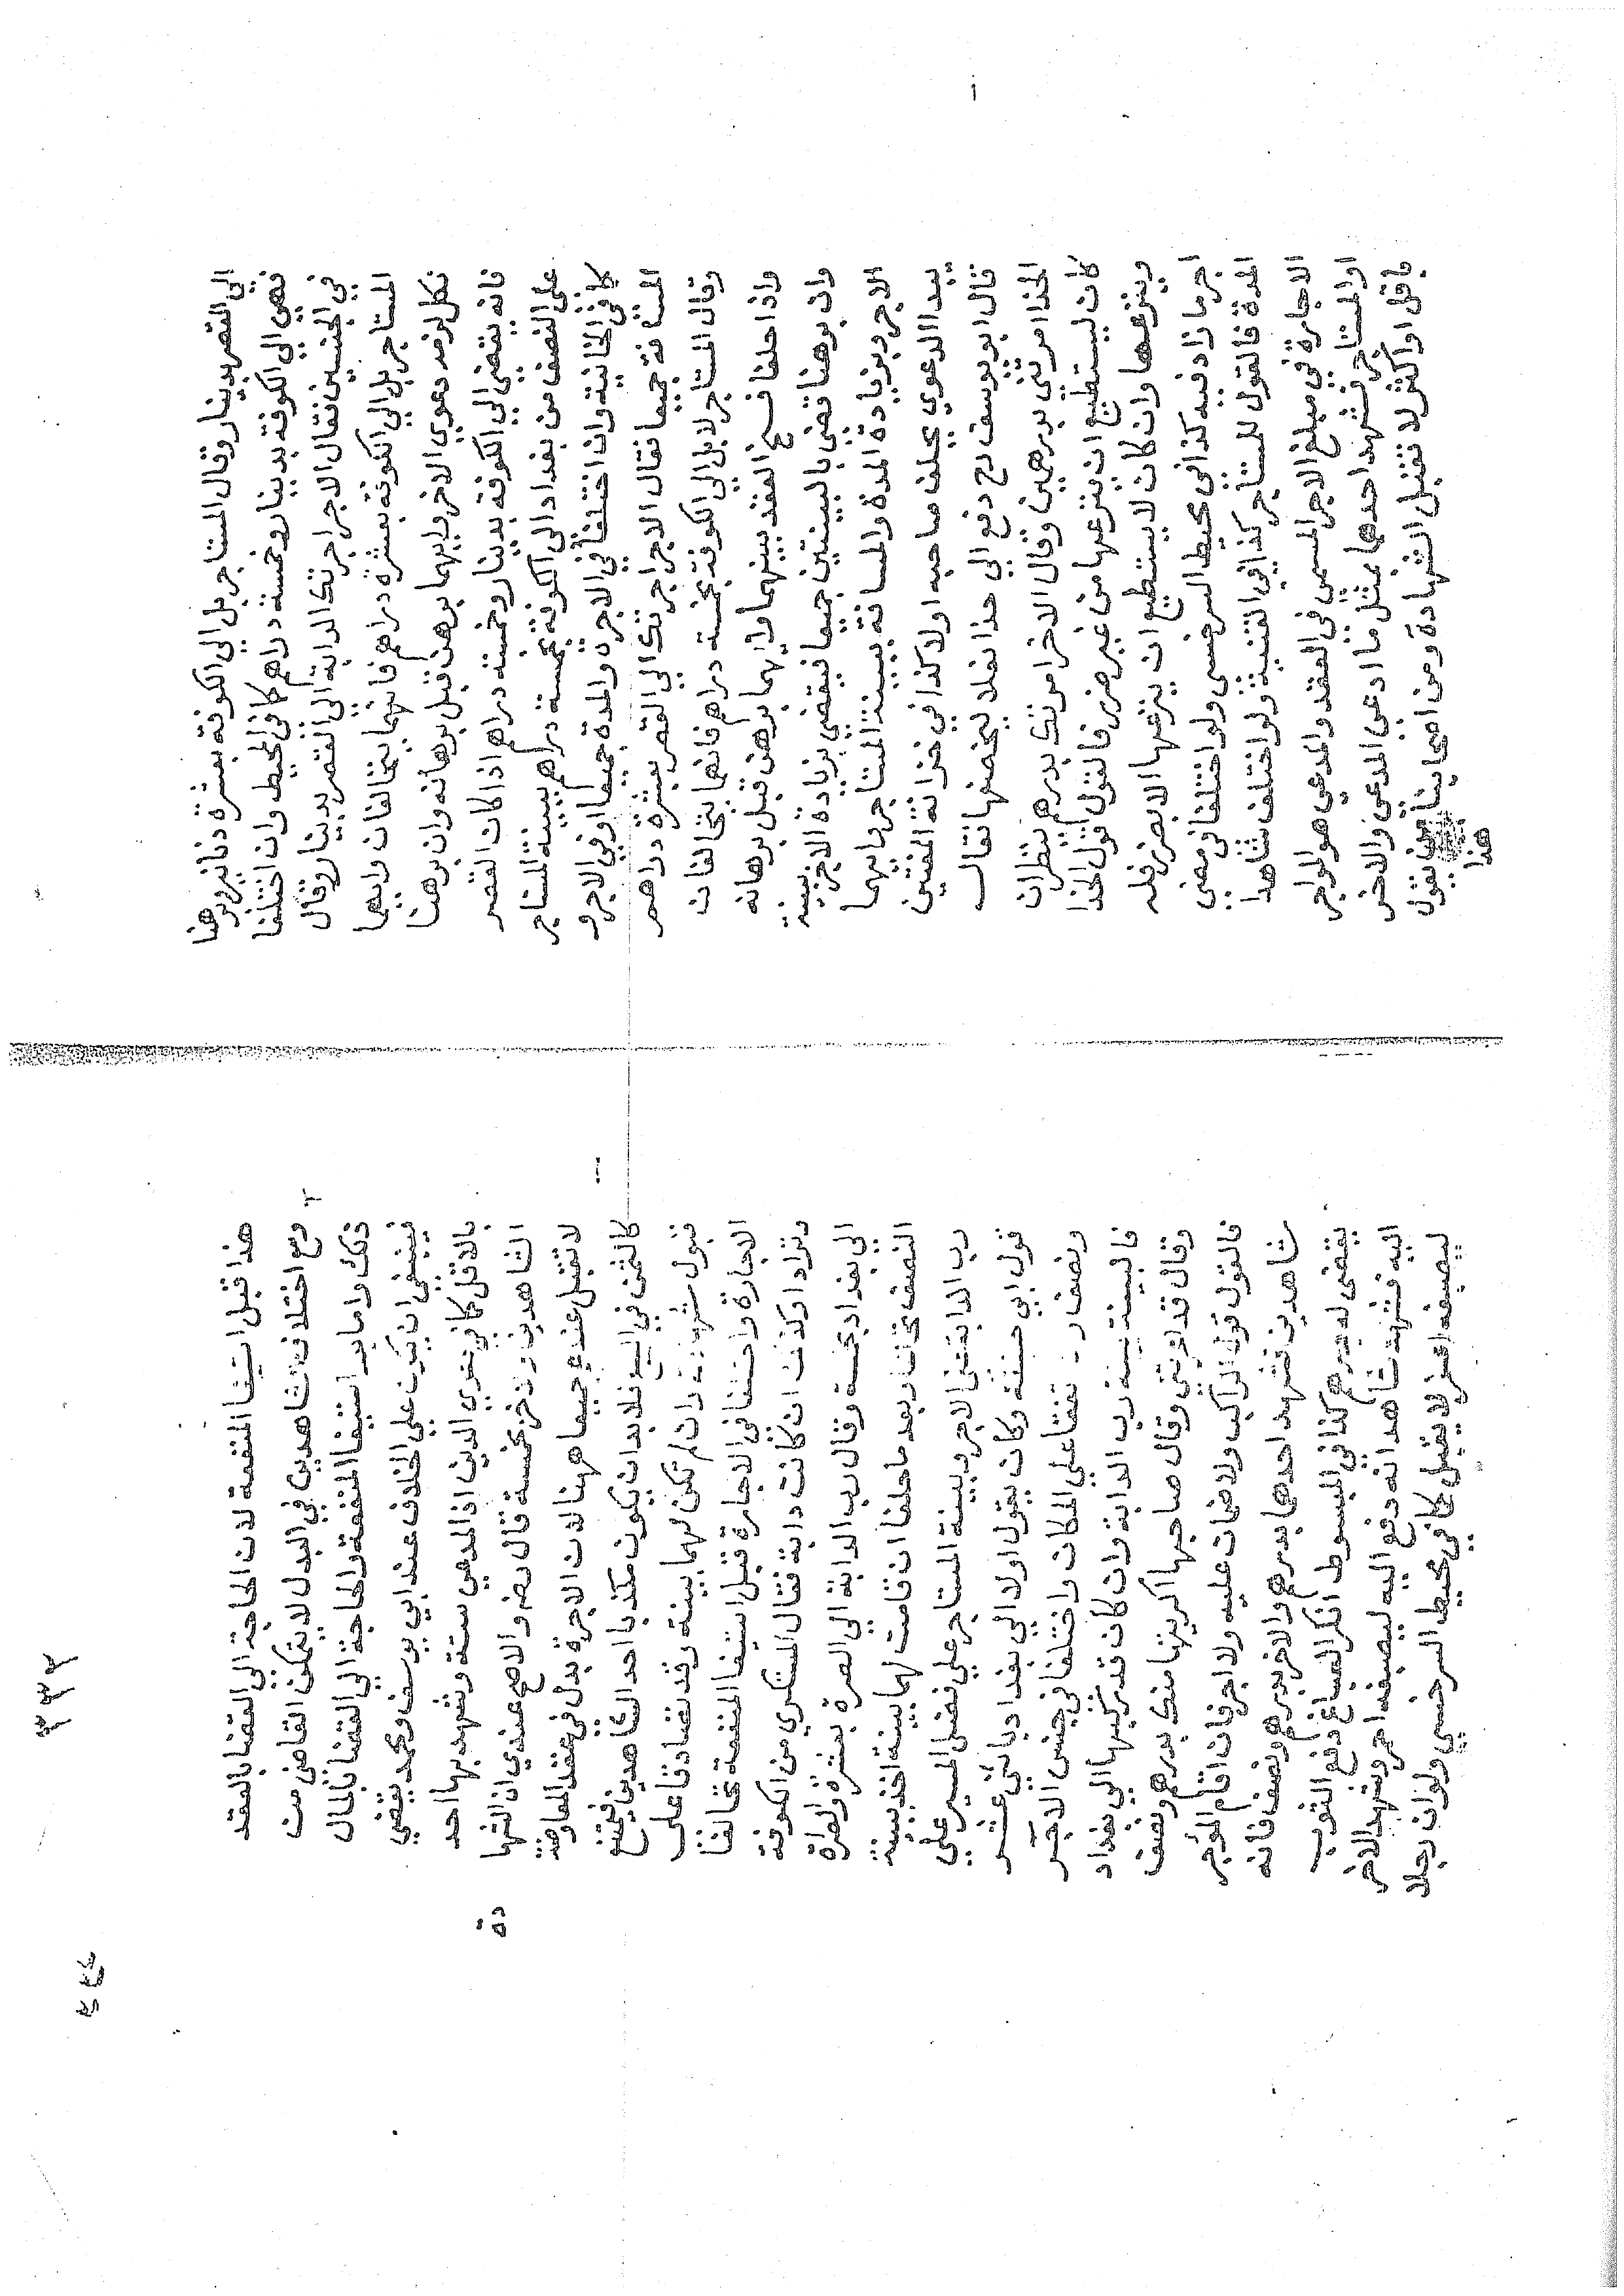 الى القصر بدينار وقال المستاجر بل الى الكوفة بعشرة دنانير وبرهنا
فهي الى الكوفة بدينار وخمسة دراهم كما في المحيط وان اختلفا
في الجنسين فقال الاجر اجرتك الدابة الى القصر بدينار وقال
المستاجر بل الى الكوفة بعشرة دراهم فانهما يتحالفان وايهما
نكل لزمه دعوي الاخر وايهما برهن قبل برهانه وان برهنا
فانه يقضى الى الكوفة بدينار وخمسة دراهم اذا كان القصر
على النصف من بغداد الى الكوفة بخمسة دراهم ببينة المستاجر
كما في الخانية وان اختلفا في الاجرة والمدة جميعا اوفي الاجر و
المسافة جميعا فقال الاجر اجرتك الى القصر بعشرة دراهم
وقال المستاجر لا بل الى الكوفة بخمسة دراهم فانهما يتحالفان
واذا حلفا فسخ العقد بينهما وايهما برهن قبل برهانه
وان برهنا قضى بالبينتين جميعا فيقضي بزيادة الاجر ببينة
الاجر وبزيادة المدة والمسافة ببينة المستاجر وايهما
يبدا الدعوي يحلف صاحبه اولا كذا في خزانة المفتين
قال ابو يوسف رح دفع الى حذا نعلا ليخصفها فقال
الحذا امرتنى بدرهمين وقال الاخر امرتك بدرهم ينظر ان
كان ليستطيع ان ينزعها من غير ضرر فالقول قول الحذا
وينزعها وان كان لا يستطيع ان ينزعها الا بضرر فله
اجر ما زاد فيه كذا في محيط السرخسى ولو اختلفا في مضى
المدة فالقول للمستاجر كذا في القنية ولو اختلف شاهدا
الاجارة في مبلغ الاجر المسمى في العقد والمدعي هو المواجر
او المستاجر فشهد احدهما بمثل ما ادعى المدعى والاخر
باقل او اكثر لا تقبل الشهادة ومن اصحابنا من يقول
هذا
هذا قبل استيفا المنفعة لان الحاجة الى القضا بالعقد
ومع اختلاف الشاهدين في البدل لا يتمكن القاضى من
ذلك واما بعد استيفا المنفعة والحاجة الى القضا بالمال
فينبغى ان يكون على الخلاف عند ابي يوسف ومحمد يقضي
بالاقل كما في دعوي الدين اذا المدعي ستة وشهد بها احد
الشاهدين والاخر بخمسة قال رضه والاصح عندي ان الشها
دة
لا تقبل عندهم جميعا ههنا لان الاجرة بدل في عقد المعاوضة
كالثمن في البيع فلا بد ان يكون مكذبا احد الشاهدين فيمتنع
قبول شهادته وان لم تكن لهما بينة وقد تصادقا على
الاجارة واختلفا في الاجارة قبل استيفا المنفعة تحالفا
وترادا وكذلك ان كانت دابة فقال المستكري من الكوفة
الى بغداد بخمسة وقال رب الدابة الى الصرة بعشرة والصراة
النصف تحالفا وبعد ما حلفا ان قامت لهما بينة اخذ ببينة
رب الدابة على الاجر وببينة المستاجر على فضل المسير على
قول ابي حنيفة وكان يقول اولا الى بغداد باثنى عشر
ونصف ولو اتفقا على المكان واختلفا في جنس الاجر
فالبينة بينة رب الدابة وان كان قد ركبها الى بغداد
وقال قد اعرتنى وقال صاحبها اكريتها منك بدرهم ونصف
فالقول قول الراكب ولا ضمان عليه ولا اجر فان اقام المؤجر
شاهدين فشهد احدهما بدرهم والاخر بدرهم ونصف فانه
يقضى له بدرهم كذا في المبسوط انكر الصباغ دفع الثوب
اليه فشهد شاهد انه دفع اليه ليصبغه احمر وشهد الاخر
ليصبغه اصفر لا يقبل كما في محيط السرخسي ولو ان رجلا